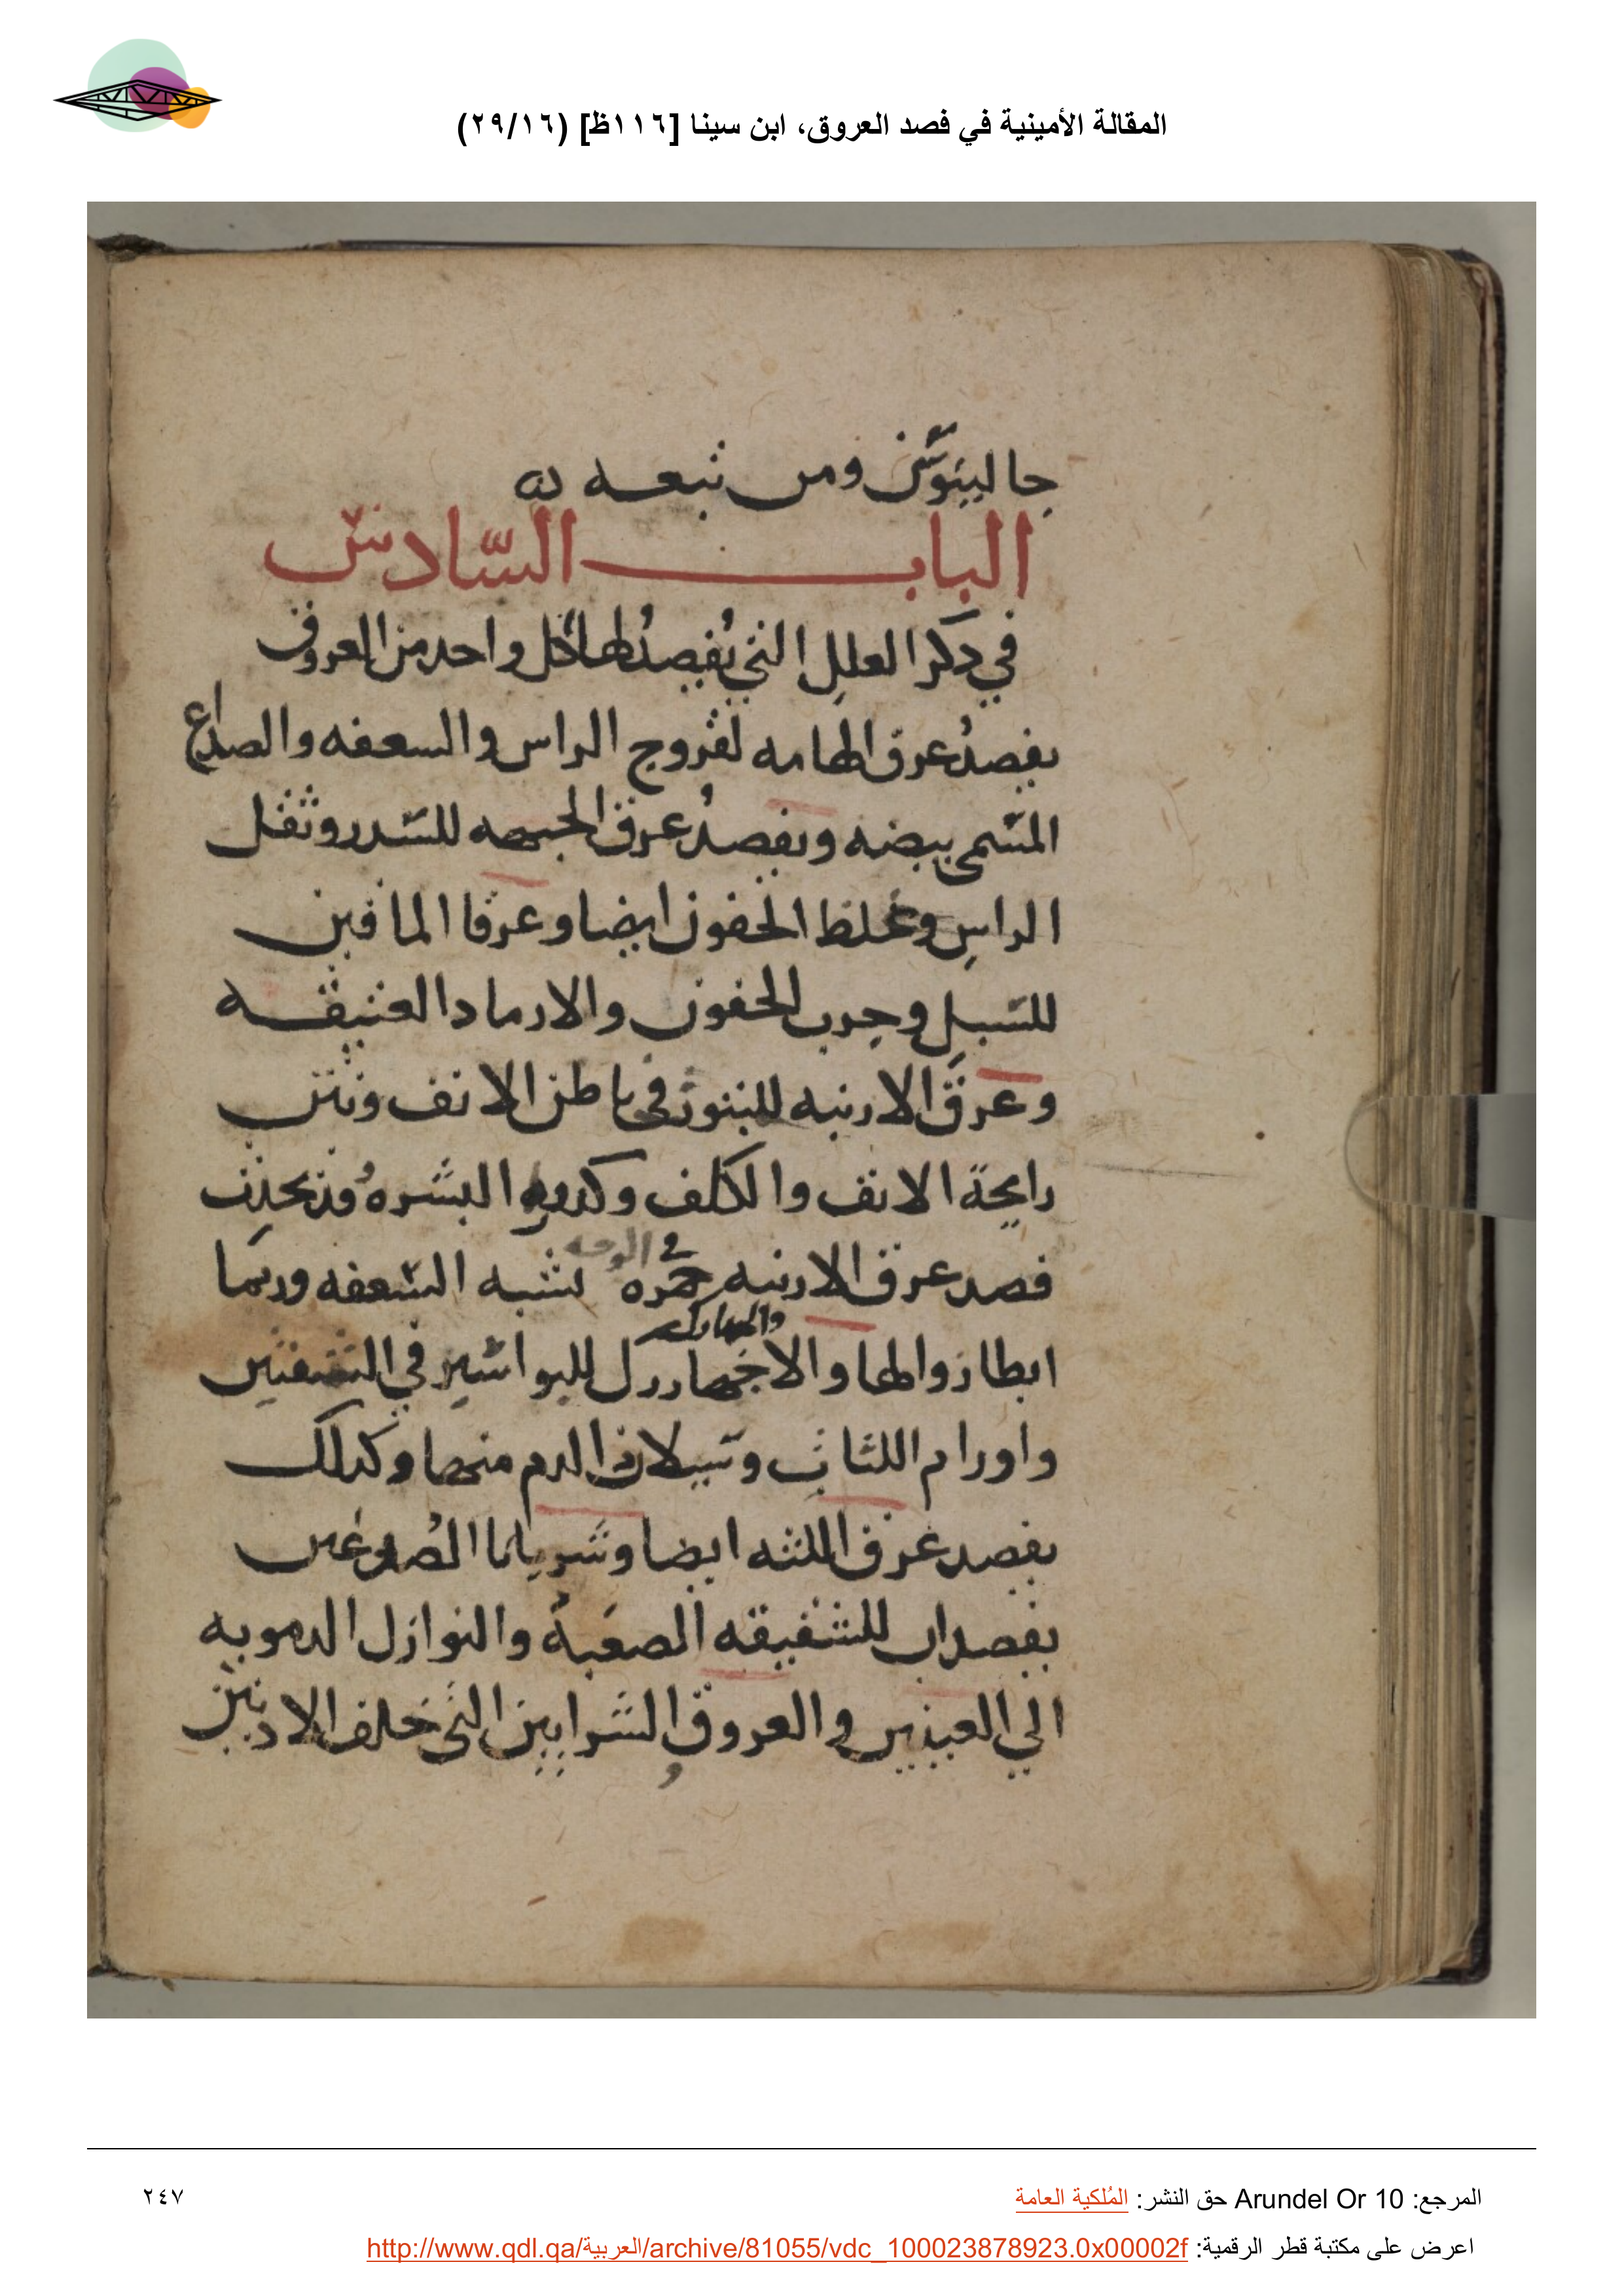 المقالة الأمينية في فصد العروق، ابن سينا [١١٦ظ] (٢٩/١٦)
جالينوس ومن تبعه
الباب السادس
في ذكر العلل التي يُفصدُ لها كل واحد من العروق
يفصدُ عرق الهامه لقروح الراس والسعفه والصداع
المسمى بيضه ويفصدُ عرق الجبهه للسدر وثقل
الراس وغلظ الجفون ايضا وعرقا الماقين
للسبل وجرب الجفون والارماد العتيقه
وعرق الارنبه للبثور في باطن الانف ونتن
رايحة الانف والكلف وكدوره البشره وقد يحدث
فصد عرق الارنبه حمره في الوجه تشبه السعفه وربما
ابطا زوالها والاجهاررك للبواسير في الشفتين
والجهارك
واورام اللثات وسيلان الدم منها وكذلك
يفصد عرق اللثه ايضا وشريانا الصدغين
يفصدان للشقيقه الصعبة والنوازل الدمويه
الي العينين والعروق الشرايين التي خلف الاذنين
المرجع: Arundel Or 10 حق النشر: المُلكية العامة
٢٤٧
اعرض على مكتبة قطر الرقمية: http://www.qdl.qa/العربية/archive/81055/vdc_100023878923.0x00002f